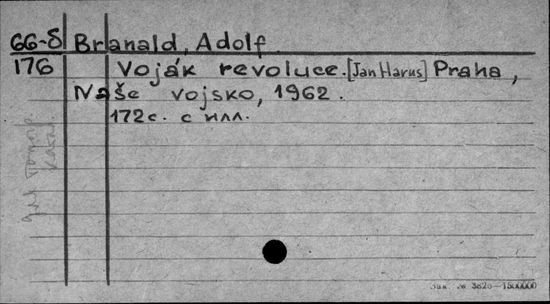 66-8 Branald, Adolf
176 Voják revoluce. [Jan Harus] Praha,
Naše vojsko, 1962.
172с. с илл.
Зак. № 3820—1500000